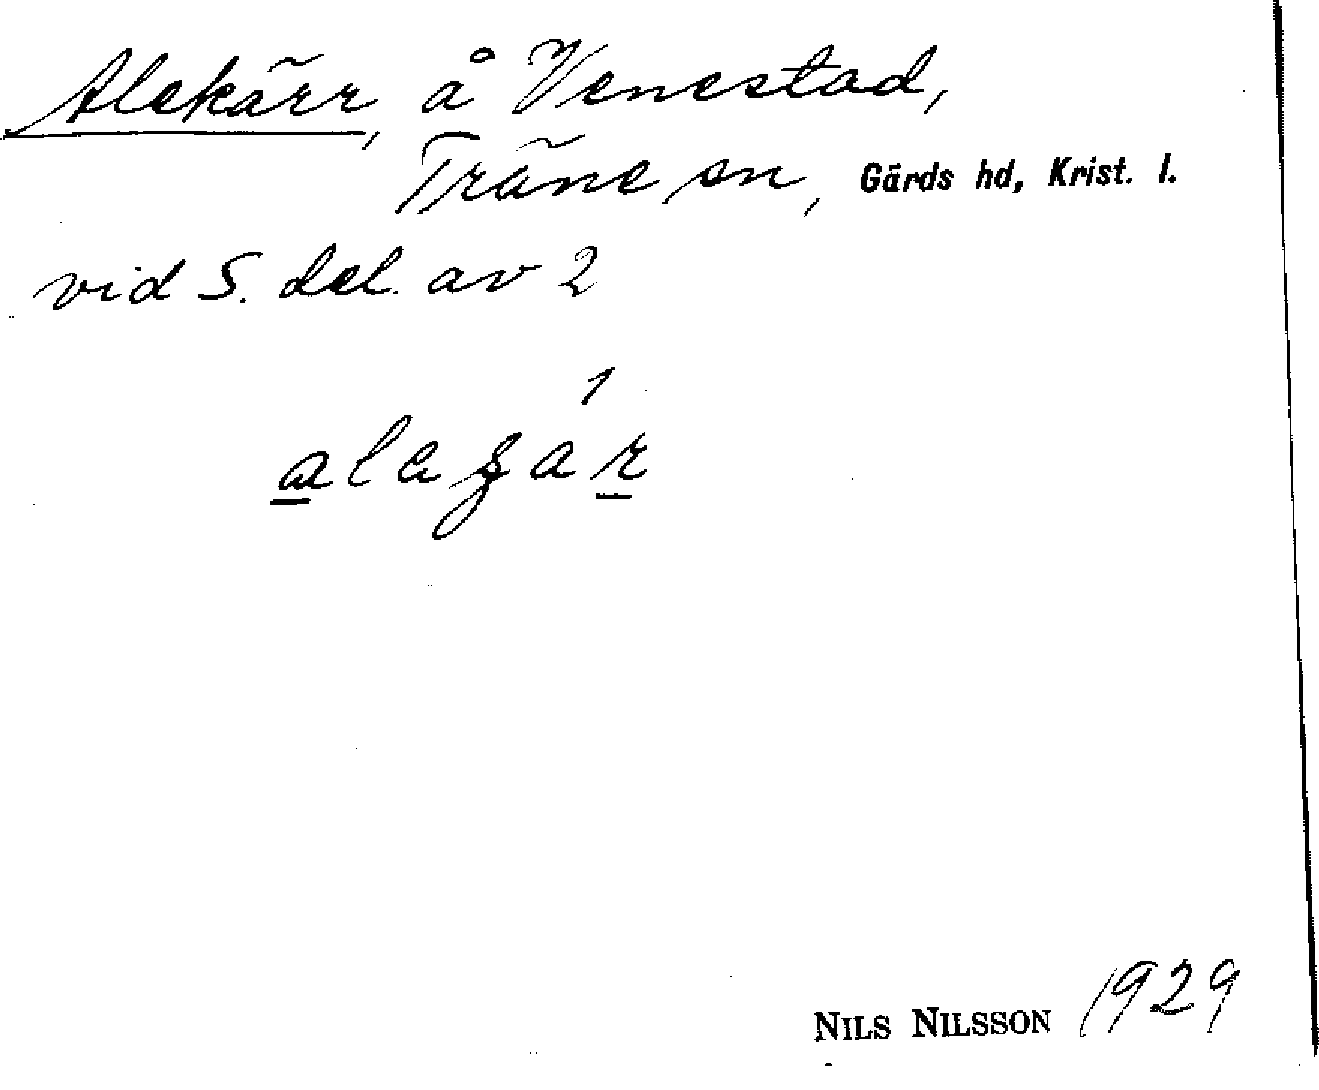 Alekärr, å Venestad,
Träne sn, Gärds hd, Krist. l.
vid S. del. av 2
1
NILS NILSSON 1929